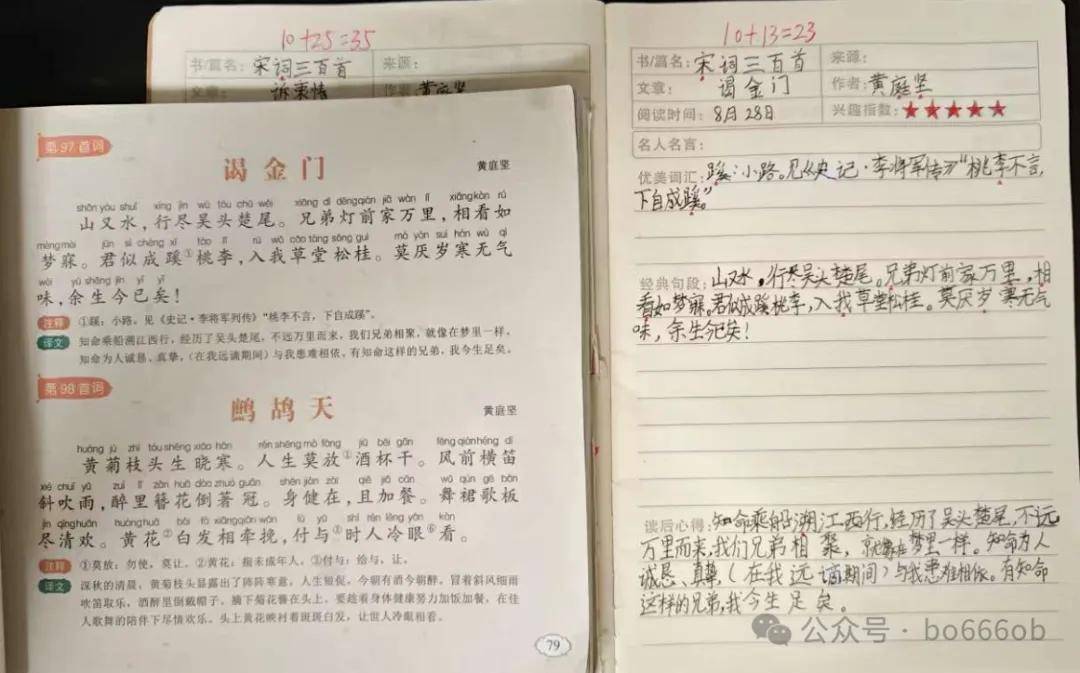 10+25=35
书/篇名: 宋词三百首 来源:
文章: 诉衷情 作者 黄庭坚
第97首词
谒金门
黄庭坚
shān yòu shuǐ xíng jìn wú tóu chǔ wěi xiōng dì dēng qián jiā wàn lǐ xiāng kàn rú
山又水，行尽吴头楚尾。兄弟灯前家万里，相看如
mèng mèi jūn sì chéng xī táo lǐ rù wǒ cǎo táng sōng guì mò yàn suì hán wú qì
梦寐。君似成蹊①桃李，入我草堂松桂。莫厌岁寒无气
wèi yú shēng jīn yǐ yǐ
味，余生今已矣！
注释 ①蹊：小路。见《史记·李将军列传》“桃李不言，下自成蹊”。
译文 知命乘船溯江西行，经历了吴头楚尾，不远万里而来，我们兄弟相聚，就像在梦里一样。
知命为人诚恳、真挚，（在我远谪期间）与我患难相依，有知命这样的兄弟，我今生足矣。
第98首词
鹧鸪天
黄庭坚
huáng jú zhī tóu shēng xiǎo hán rén shēng mò fàng jiǔ bēi gān fēng qián héng dí
黄菊枝头生晓寒。人生莫放①酒杯干。风前横笛
xié chuī yǔ zuì lǐ zān huā dào zhuó guān shēn jiàn zài qiě jiā cān wǔ qún gē bǎn
斜吹雨，醉里簪花倒著冠。身健在，且加餐。舞裙歌板
jìn qīng huān huáng huā bái fà xiāng qiān wǎn fù yǔ shí rén lěng yǎn kàn
尽清欢。黄花②白发相牵挽，付与③时人冷眼⑥看。
注释 ①莫放：勿使，莫让。②黄花：指未成年人。③付与：给与，让。
译文 深秋的清晨，黄菊枝头显露出了阵阵寒意，人生短促，今朝有酒今朝醉。冒着斜风细雨
吹笛取乐，酒醉里倒戴帽子，摘下菊花簪在头上。要趁着身体健康努力加饭加餐，在佳
人歌舞的陪伴下尽情欢乐。头上黄花映衬着斑斑白发，让世人冷眼相看。
79
10+13=23
书/篇名: 宋词三百首 来源:
文章: 谒金门 作者: 黄庭坚
阅读时间: 8月28日 兴趣指数: ★★★★★
名人名言:
优美词汇: 蹊：小路。见《史记·李将军传》“桃李不言，
下自成蹊”。
经典句段: 山又水，行尽吴头楚尾。兄弟灯前家万里，相
看如梦寐。君似成蹊桃李，入我草堂松桂。莫厌岁寒无气
味，余生矣！
读后心得: 知命乘船溯江西行，经历了吴头楚尾，不远
万里而来，我们兄弟相聚，就像在梦里一样。知命为人
诚恳、真挚，（在我远谪期间）与我患难相依。有知命
这样的兄弟，我今生足矣。
公众号·bo666ob